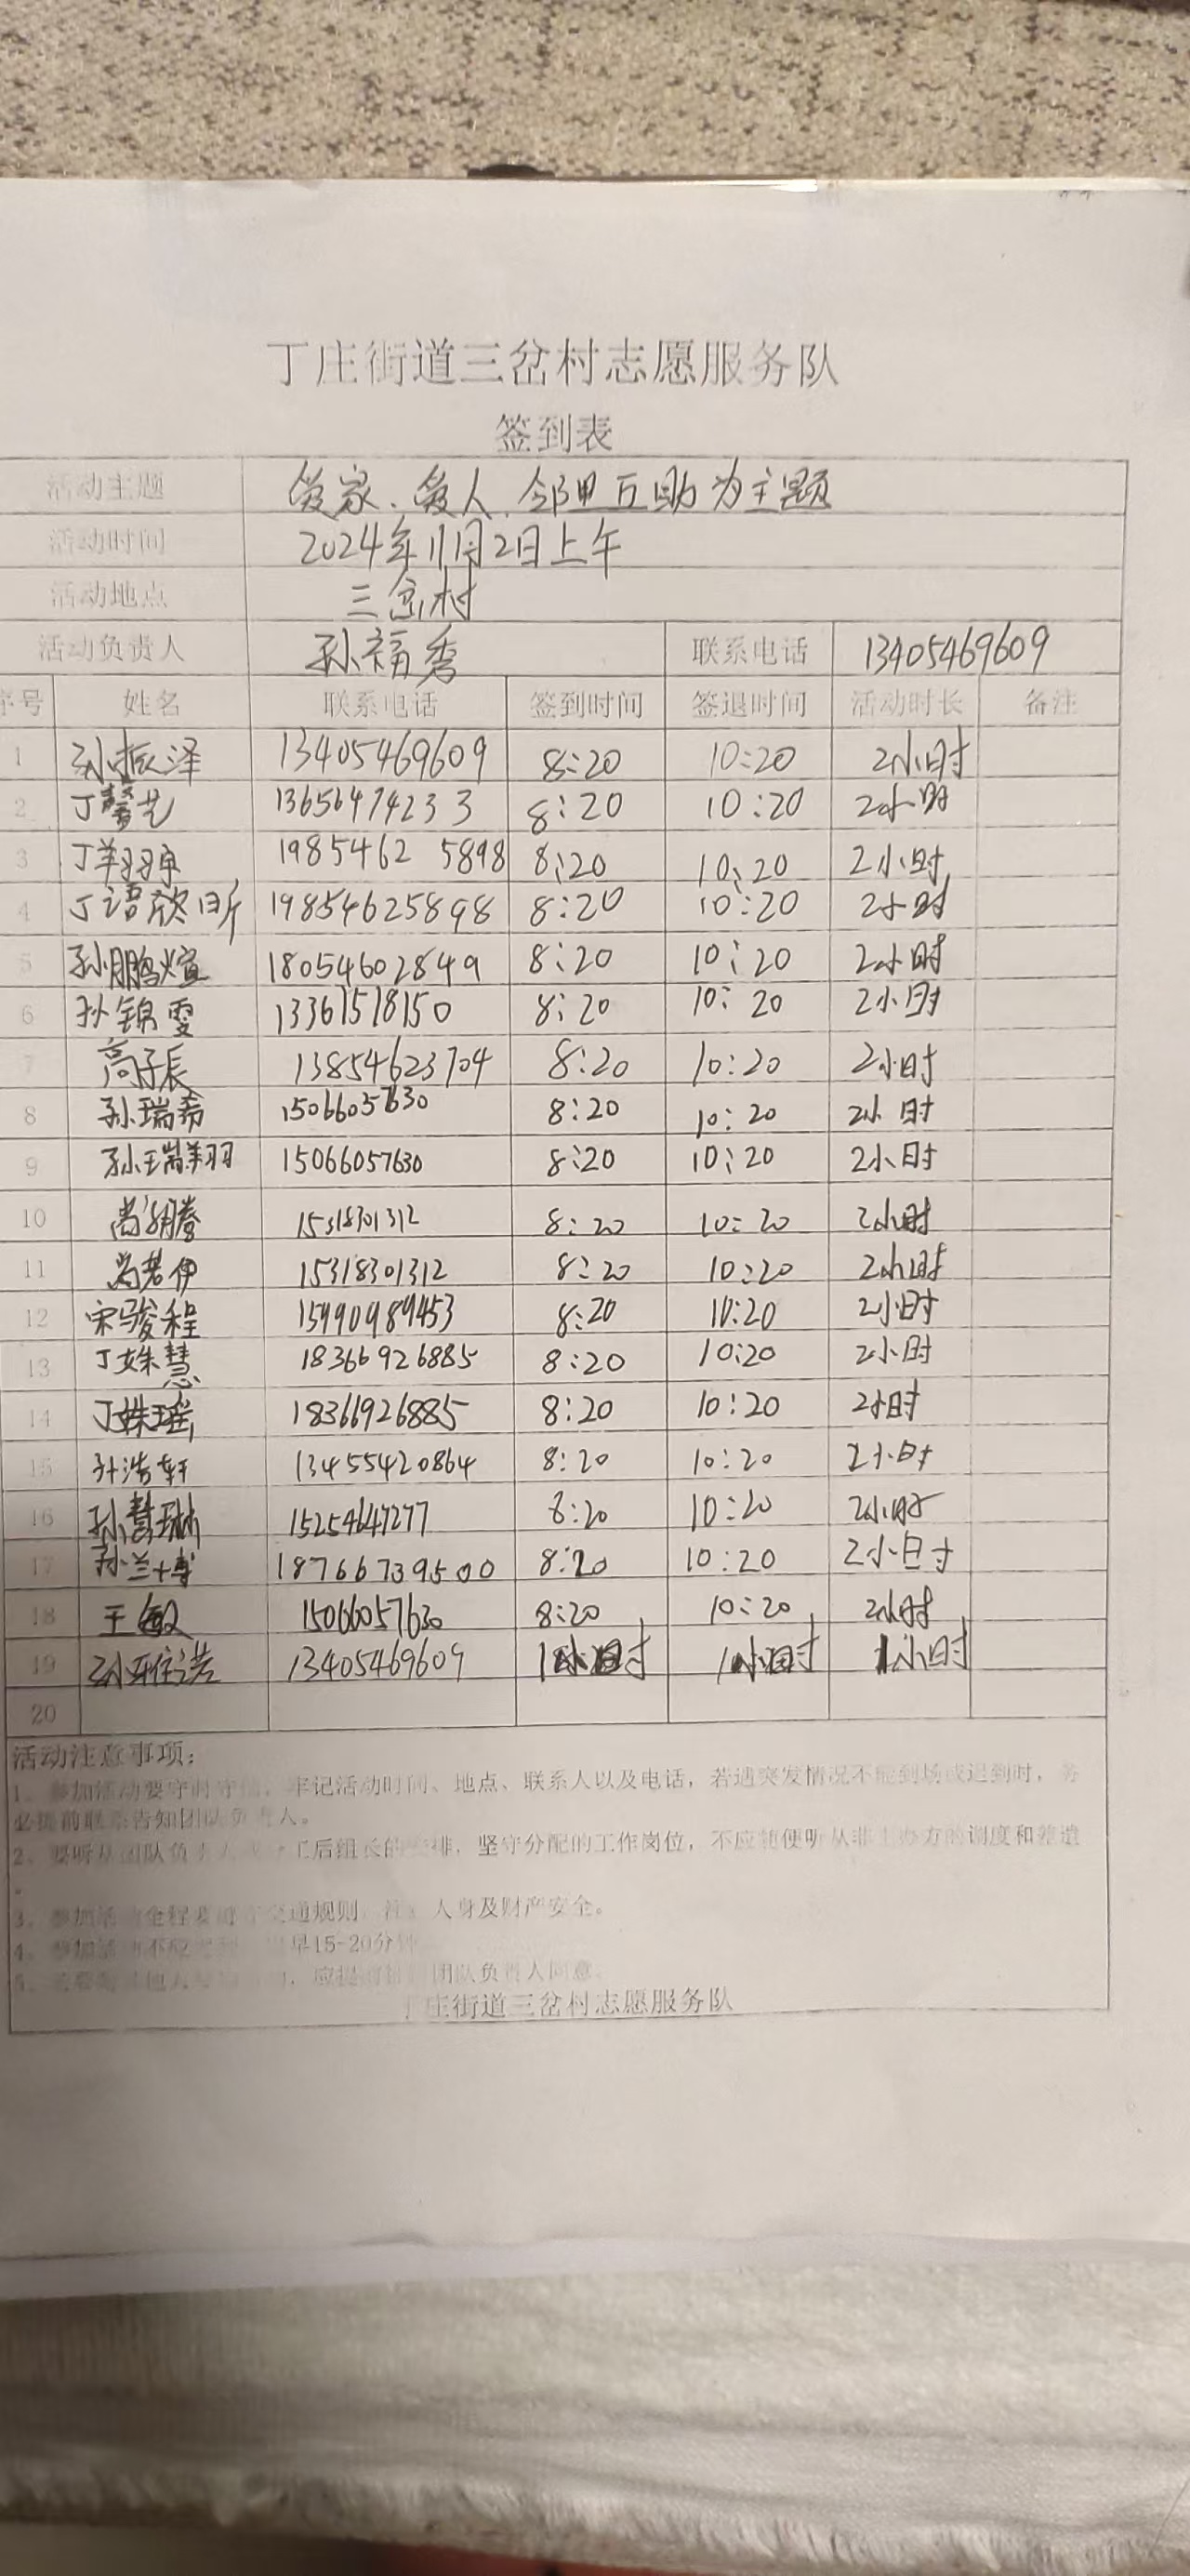 丁庄街道三岔村志愿服务队
签到表
活动主题 爱家、爱人、邻里互助为主题
活动时间 2024年11月2日上午
活动地点 三岔村
活动负责人 孙福秀 联系电话 13405469609
序号 姓名 联系电话 签到时间 签退时间 活动时长 备注
1 孙振泽 13405469609 8:20 10:20 2小时
2 丁馨艺 13656474233 8:20 10:20 2小时
3 丁羽 19854625898 8:20 10:20 2小时
4 丁语欣 19854625898 8:20 10:20 2小时
5 孙鹏煊 18054602849 8:20 10:20 2小时
6 孙锦雯 13361518150 8:20 10:20 2小时
7 高子辰 13854623704 8:20 10:20 2小时
8 孙瑞希 15066057630 8:20 10:20 2小时
9 孙瑞翔 15066057630 8:20 10:20 2小时
10 尚腾 15318301312 8:20 10:20 2小时
11 尚若伊 15318301312 8:20 10:20 2小时
12 宋骏程 15990989453 8:20 10:20 2小时
13 丁姝慧 18366926885 8:20 10:20 2小时
14 丁姝瑶 18366926885 8:20 10:20 2小时
15 孙浩轩 13455420864 8:20 10:20 2小时
16 孙慧琳 15254647277 8:20 10:20 2小时
17 孙兰博 18766739500 8:20 10:20 2小时
18 王敏 15066057630 8:20 10:20 2小时
19 孙 13405469609 1小时 1小时 1小时
20
活动注意事项：
1、参加活动要守时守信，牢记活动时间、地点、联系人以及电话，若遇突发情况不能到场或迟到时，务
必提前联系告知团队负责人。
2、要听从团队负责人 工后组长的安排，坚守分配的工作岗位，不应随便听从非主办方的调度和差遣
。
3、参加活动全程要遵守交通规则，注意人身及财产安全。
4、参加活动不应迟到 早15-20分钟
5、 应提前 团队负责人同意。
丁庄街道三岔村志愿服务队